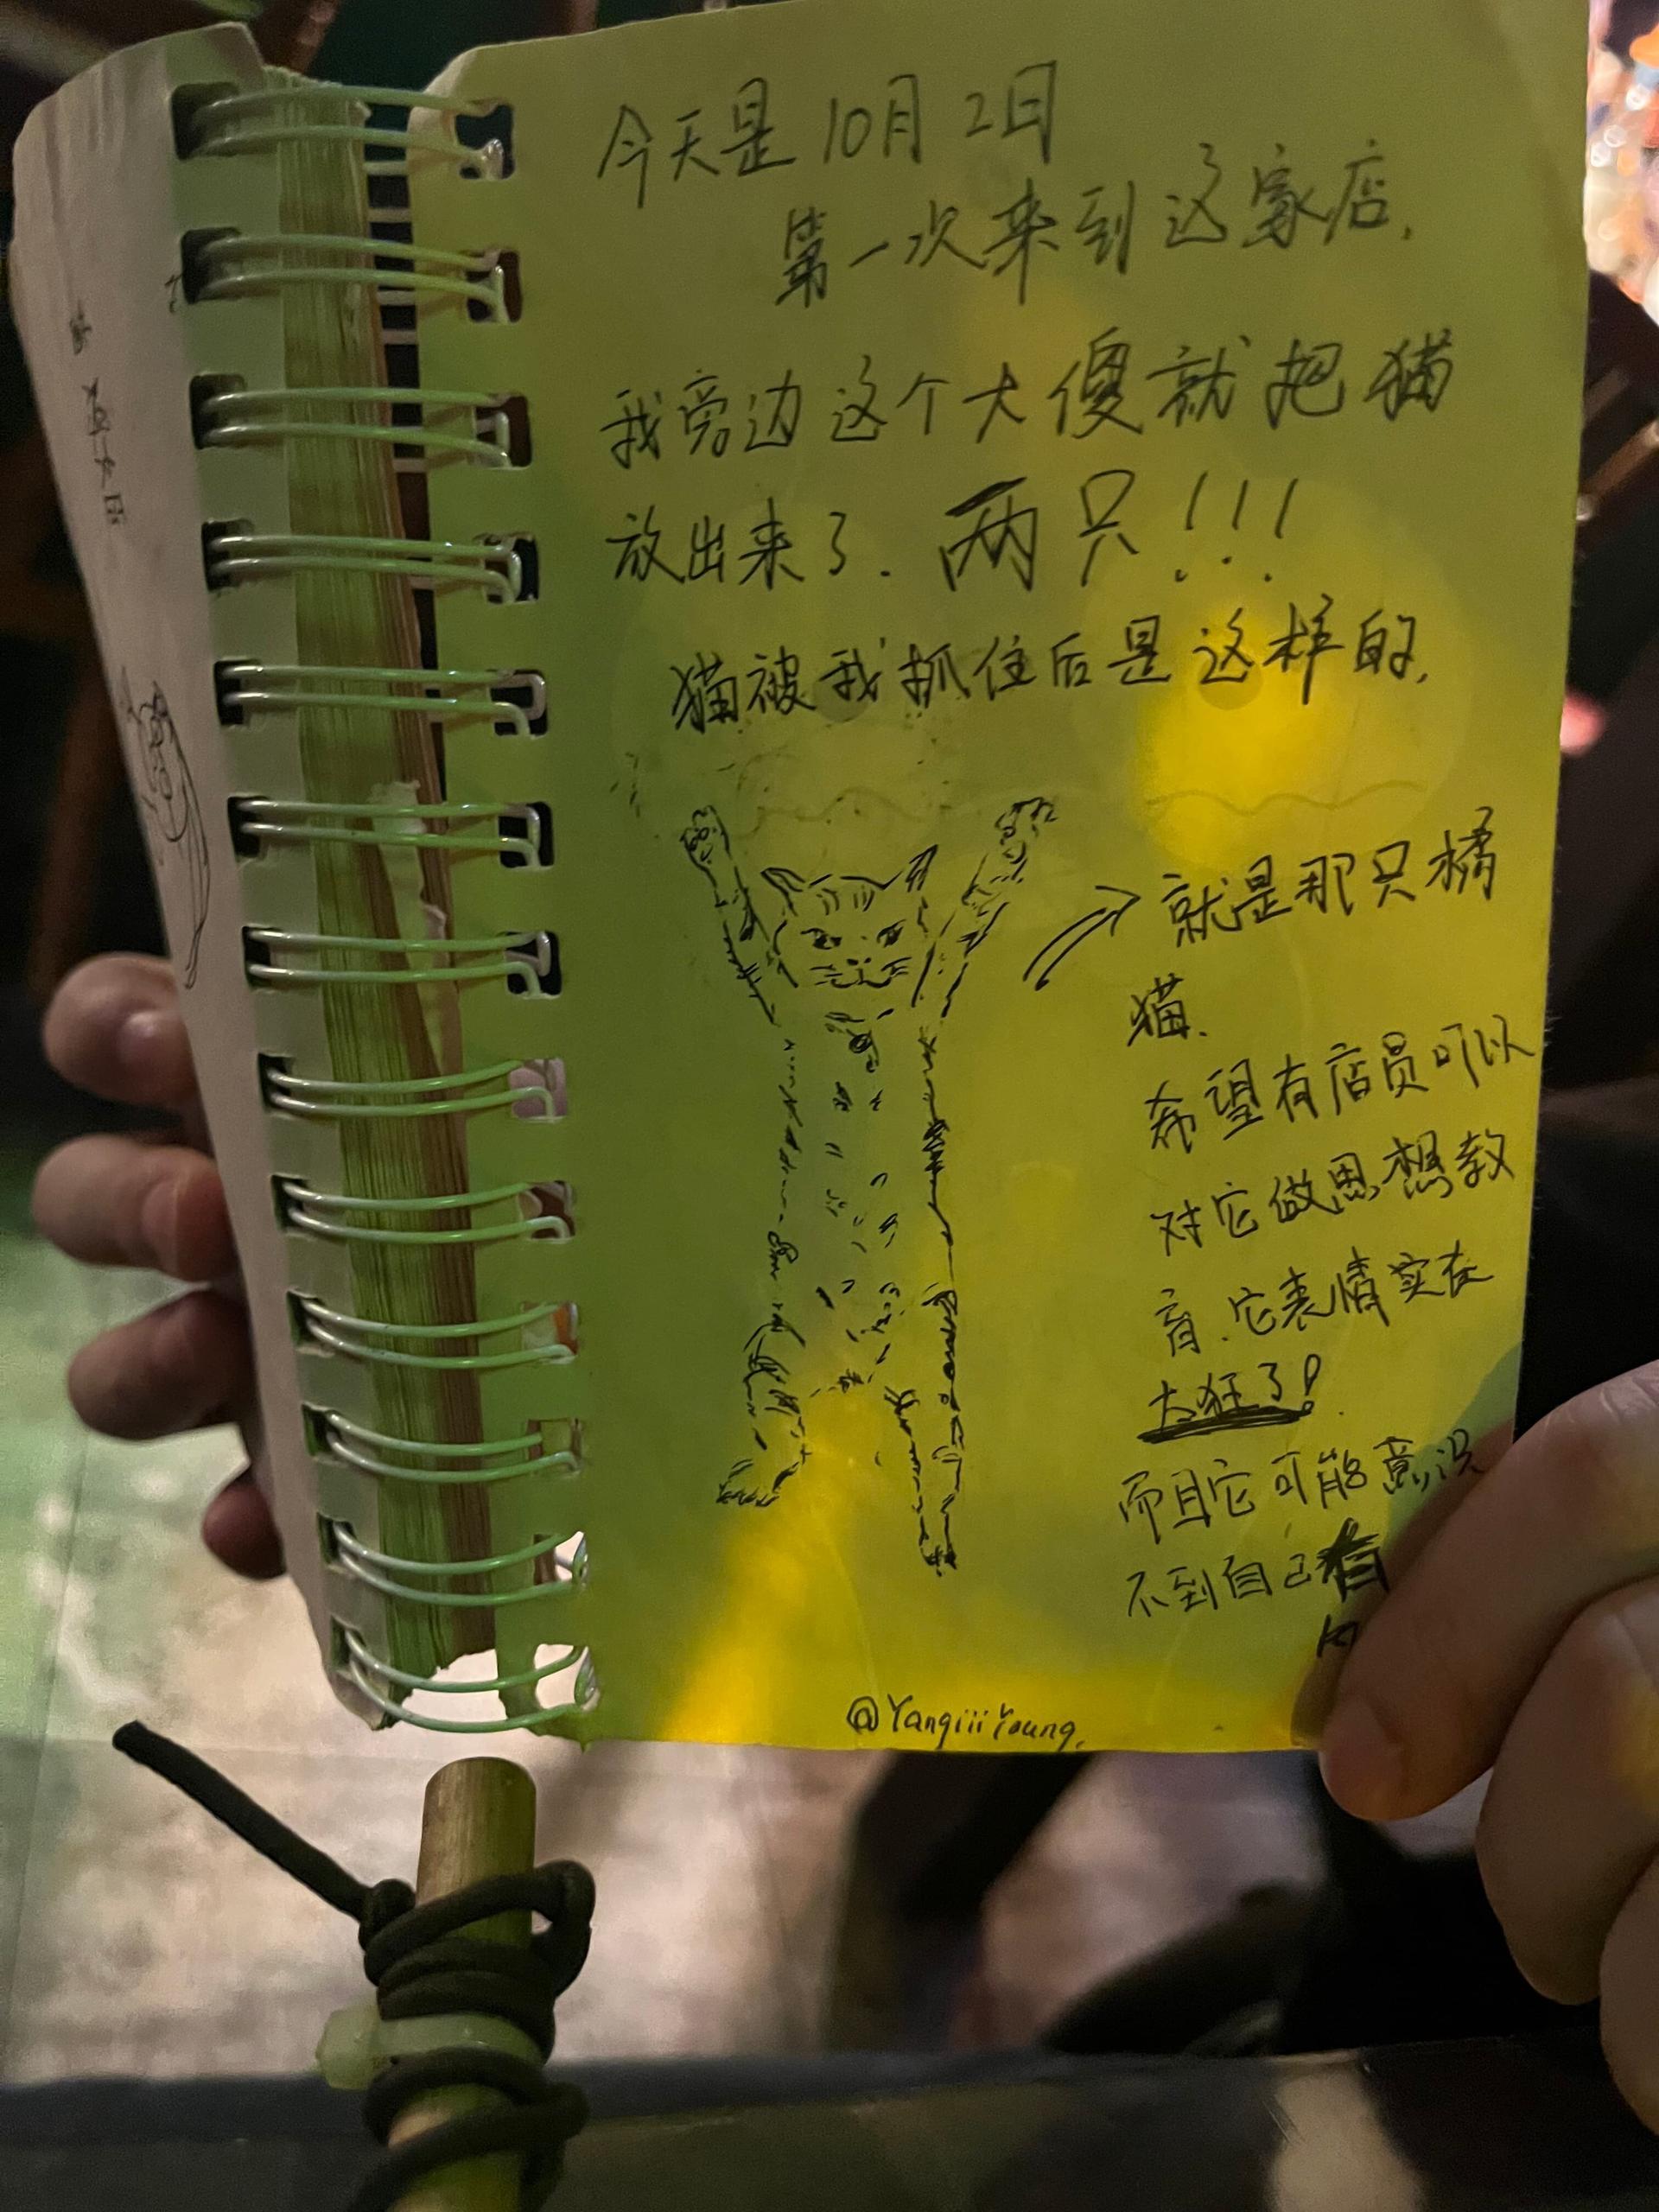 今天是10月2日
第一次来到这家店.
我旁边这个大傻就把猫
放出来了.两只!!!
猫被我抓住后是这样的.
就是那只橘
猫.
希望有店员可以
对它做思想教
育.它表情实在
太狂了!
而且它可能意识
不到自己有
@YangiiiYoung.